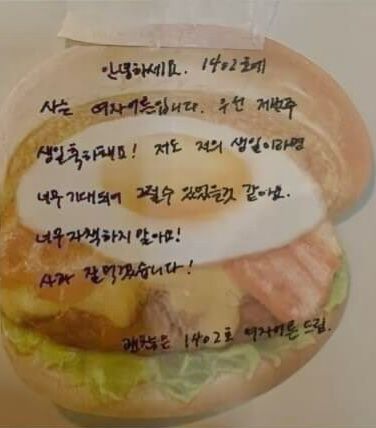 안녕하세요. 1402호에
사는 여자어른입니다. 우선 저번주
생일축하해요! 저도 저의 생일이라면
너무 기대되어 그럴수 있었을것 같아요.
너무 자책하지 말아요!
사과 잘먹겠습니다!
1402호 여자어른 드림.